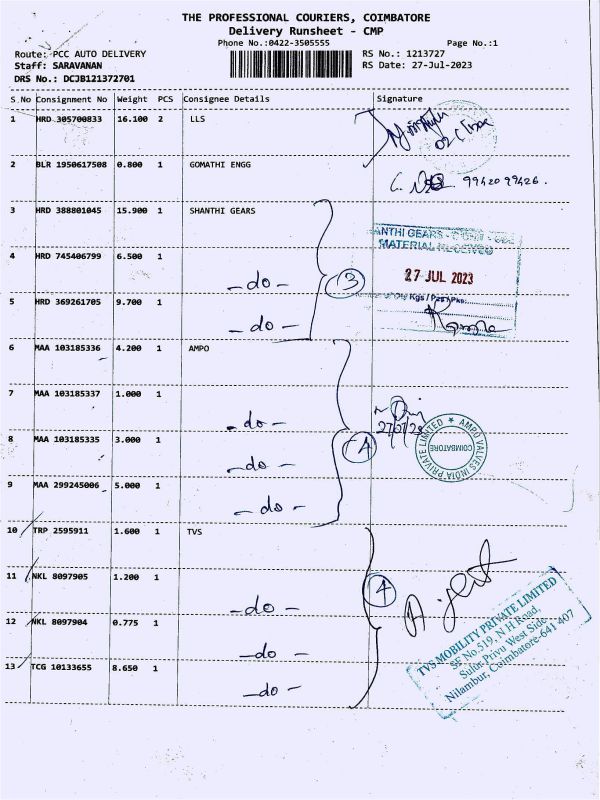 THE PROFESSIONAL COURIERS, COIMBATORE
Delivery Runsheet - CMP
Phone No.:0422-3505555 Page No.:1
Route: PCC AUTO DELIVERY RS No.: 1213727
Staff: SARAVANAN RS Date: 27-Jul-2023
DRS No.: DCJB121372701
S No Consignment No Weight PCS Consignee Details Signature
1 HRD 305700833 16.100 2 LLS
2 BLR 1950617508 0.800 1 GOMATHI ENGG
99420 99426.
3 HRD 388801045 15.900 1 SHANTHI GEARS
ANTHI GEARS
MATERIAL RECEIVED
4 HRD 745406799 6.500 1
- do - 3 27 JUL 2023
Kgs / Pcs / Pkt
5 HRD 369261705 9.700 1
- do -
6 MAA 103185336 4.200 1 AMPO
7 MAA 103185337 1.000 1
- do -
8 MAA 103185335 3.000 1
- do - 4
AMPO VALVES INDIA PRIVATE LIMITED
COIMBATORE
9 MAA 299245006 5.000 1
- do -
10 TRP 2595911 1.600 1 TVS
11 NKL 8097905 1.200 1
- do - 4
12 NKL 8097904 0.775 1
- do -
13 TCG 10133655 8.650 1
- do -
TVS MOBILITY PRIVATE LIMITED
SF No.519, N H Road,
Sulur Privu West Side
Nilambur, Coimbatore-641 407